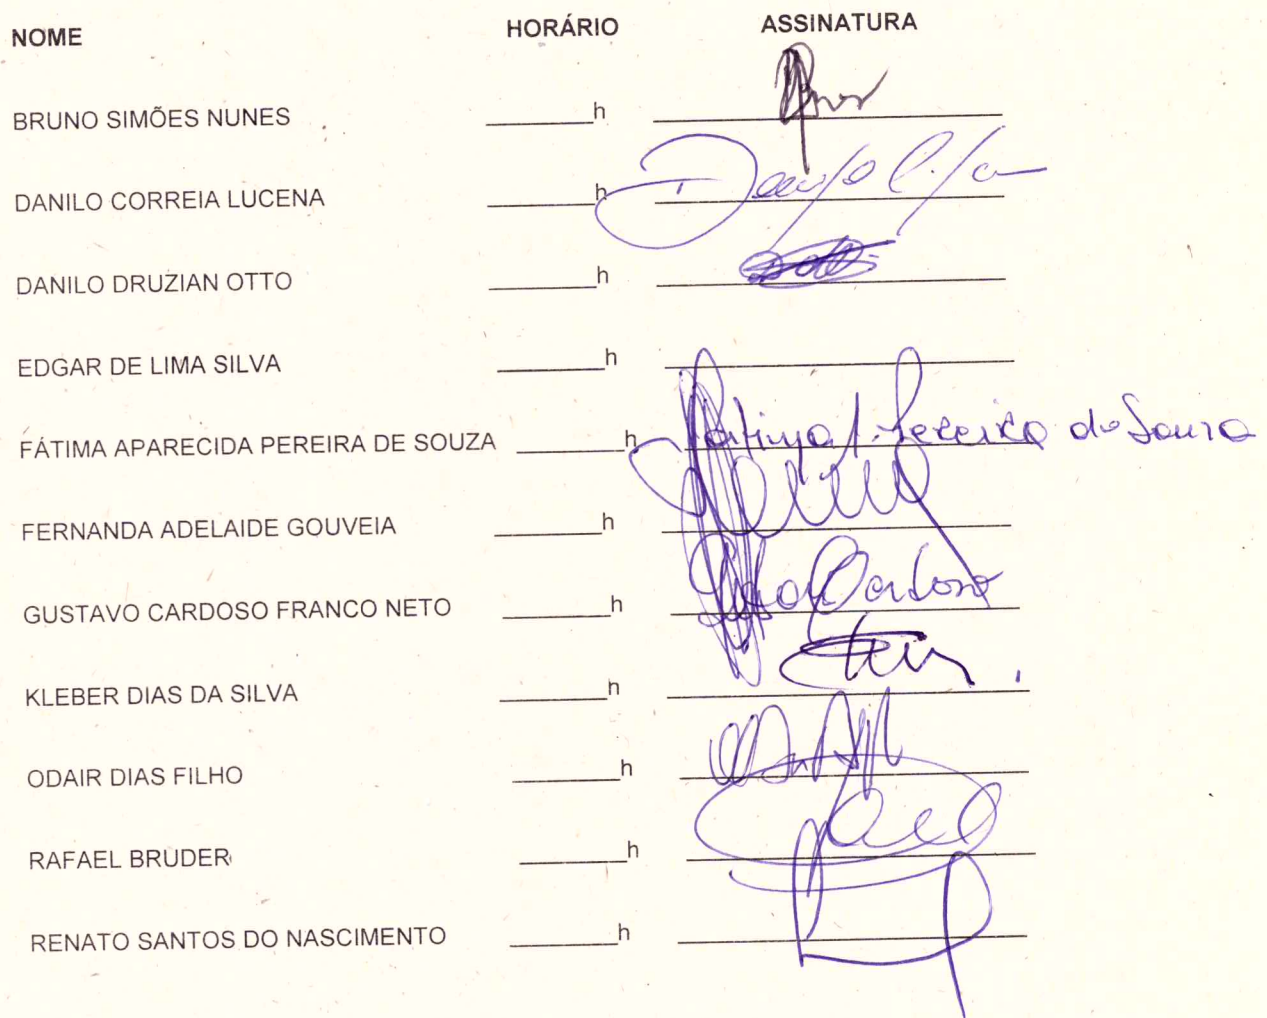 NOME HORÁRIO ASSINATURA
BRUNO SIMÕES NUNES ________h
DANILO CORREIA LUCENA ________h
DANILO DRUZIAN OTTO ________h
EDGAR DE LIMA SILVA ________h
FÁTIMA APARECIDA PEREIRA DE SOUZA ________h Fátima A. Pereira de Souza
FERNANDA ADELAIDE GOUVEIA ________h
GUSTAVO CARDOSO FRANCO NETO ________h Cardoso
KLEBER DIAS DA SILVA ________h
ODAIR DIAS FILHO ________h
RAFAEL BRUDER ________h
RENATO SANTOS DO NASCIMENTO ________h